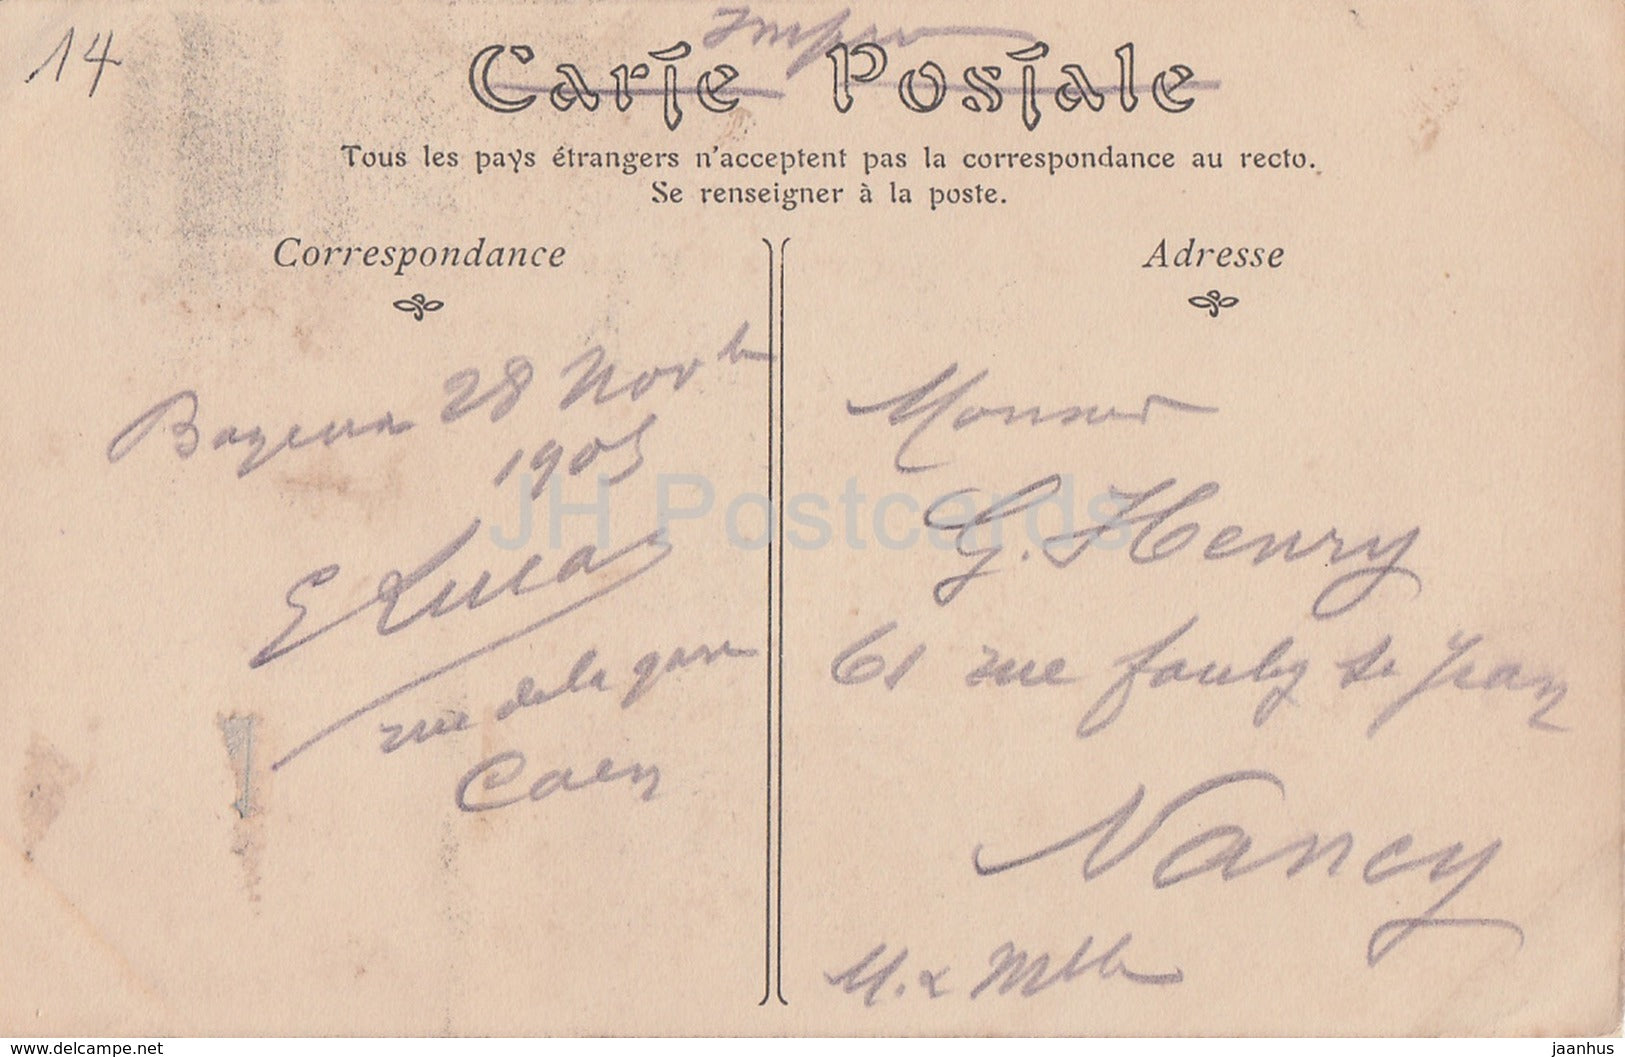 14
Carte Postale
Tous les pays étrangers n'acceptent pas la correspondance au recto.
Se renseigner à la poste.
Correspondance
28 Novb
1905
E Lucas
rue de la gare
Caen
Adresse
Monsieur
G. Henry
61 rue faubg St Jean
Nancy
M. & Mlle
JH Postcards
www.delcampe.net
jaanhus